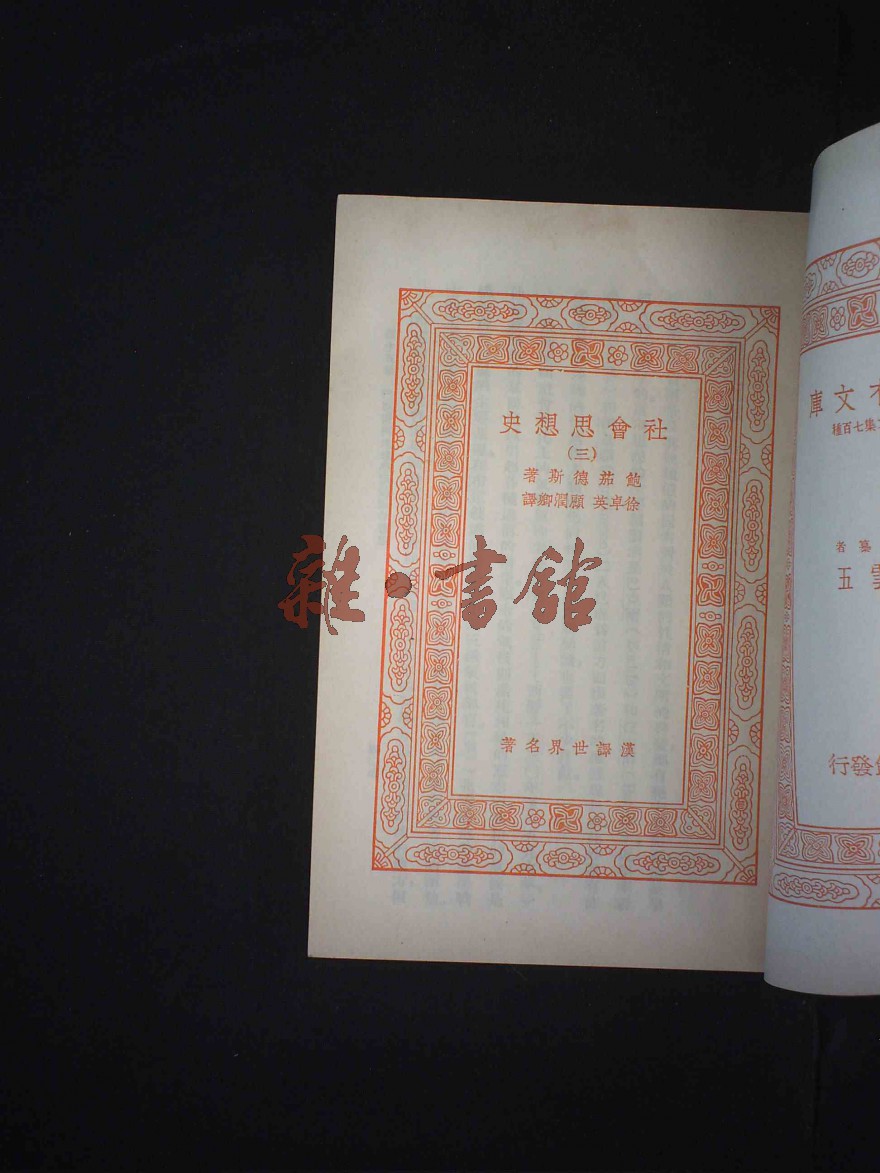 社會思想史
(三)
鮑茄德斯著
徐卓英 顧潤卿譯
漢譯世界名著
文庫
集七百種
纂者
雲五
發行
雜·書館